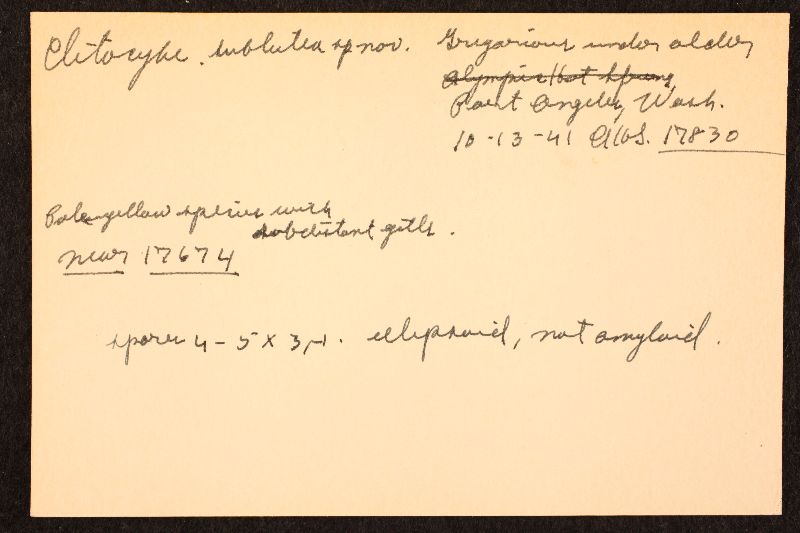 Clitocybe sublutea sp nov.
Gregarious under alder
Olympic Hot Springs
Port Angeles, Wash.
10-13-41 AHS. 17830
Pale yellow species with
subdistant gills.
near 17674
spores 4-5 x 3 μ. ellipsoid, not amyloid.